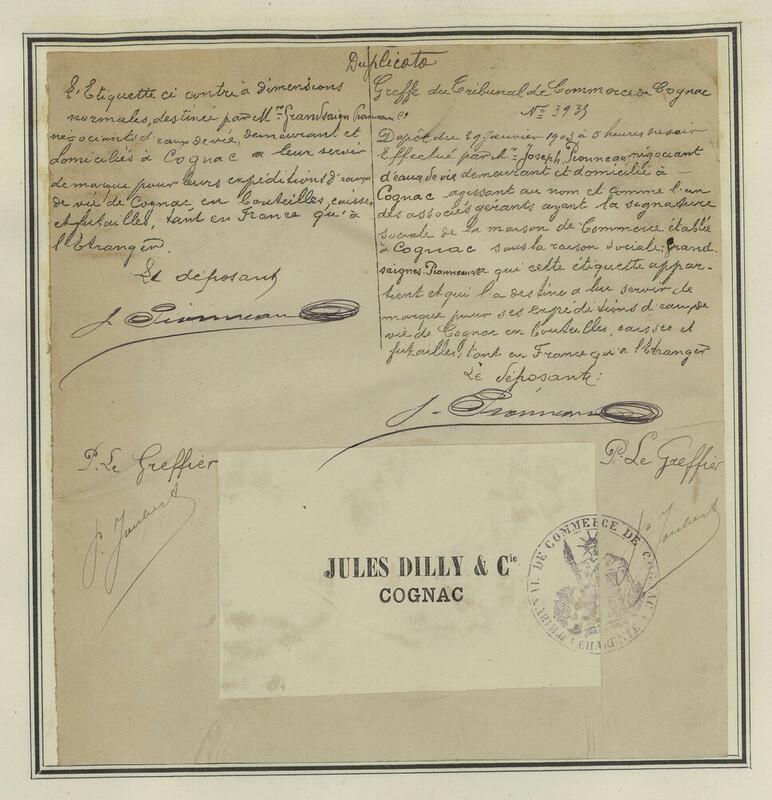 Duplicata
L'Etiquette ci contre à dimensions
normales, destinée par Mrs Grandsaigne Pionneau Cie
négociants d'eaux de vie, demeurant et
domiciliés à Cognac a leur servir
de marque pour leurs expéditions d'eaux
de vie de Cognac en bouteilles, caisses
et futailles, tant en France qu'à
l'Etranger.
Le déposant
J. Pionneau
Greffe du Tribunal de Commerce de Cognac
No 3935
Dépôt du 29 janvier 1903 à 5 heures du soir
Effectué par Mr Joseph Pionneau négociant
d'eau de vie demeurant et domicilié à
Cognac agissant au nom et comme l'un
des associés gérants ayant la signature
sociale de la maison de Commerce établie
à Cognac sous la raison sociale: Grand-
saigne, Pionneau qui cette étiquette appar-
tient et qui l'a destine a lui servir de
marque pour ses expéditions d'eaux de
vie de Cognac en bouteilles, caisses et
futailles, tant en France qu'à l'Etranger
Le déposant:
J. Pionneau
P. Le Greffier
P. Joubert
Pr. Le Greffier
P. Joubert
JULES DILLY & Cie
COGNAC
TRIBUNAL DE COMMERCE DE COGNAC
(CHARENTE)